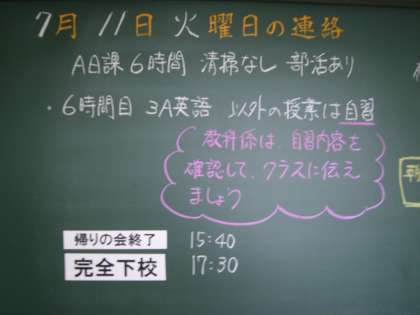 7月 11日 火曜日の連絡
A日課 6時間 清掃なし 部活あり
・6時間目 3A英語 以外の授業は自習
教科係は、自習内容を
確認して、クラスに伝え
ましょう
帰りの会終了 15:40
完全下校 17:30